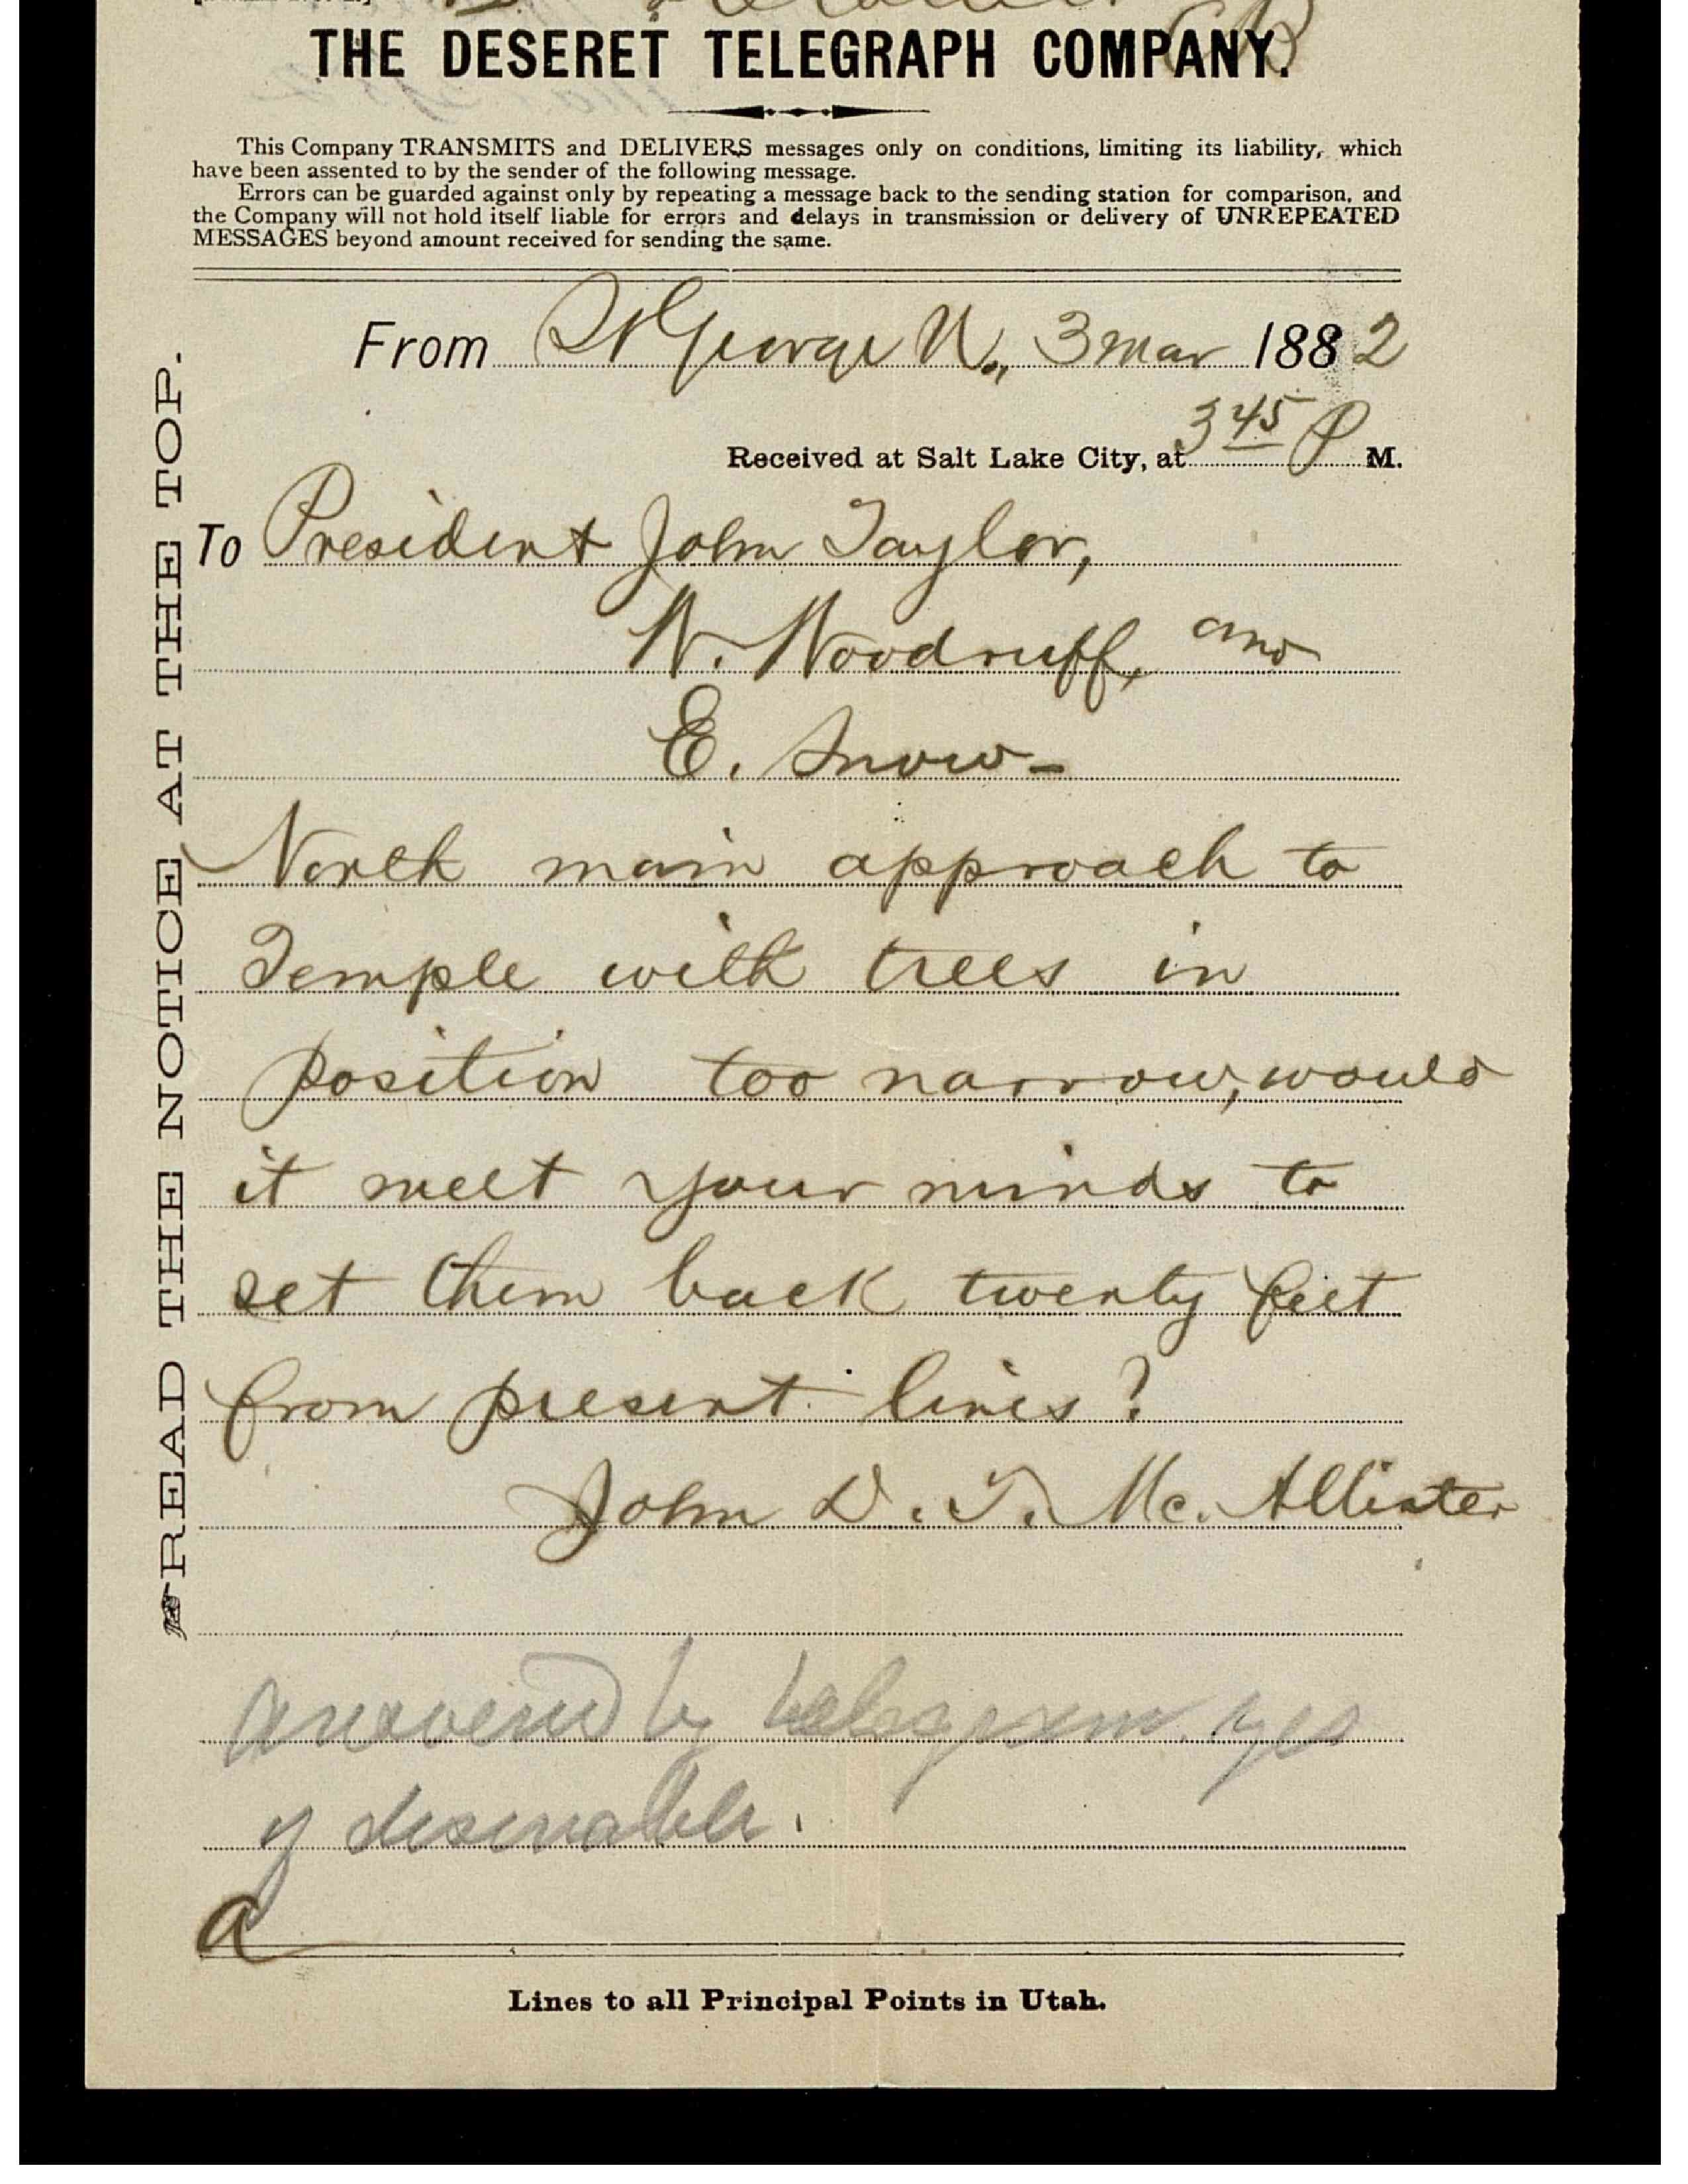 THE DESERET TELEGRAPH COMPANY.
This Company TRANSMITS and DELIVERS messages only on conditions, limiting its liability, which
have been assented to by the sender of the following message.
Errors can be guarded against only by repeating a message back to the sending station for comparison, and
the Company will not hold itself liable for errors and delays in transmission or delivery of UNREPEATED
MESSAGES beyond amount received for sending the same.
From St George U., 3 Mar 1882
Received at Salt Lake City, at 3 45 P M.
To President John Taylor,
W. Woodruff, and
E. Snow-
North main approach to
Temple with trees in
position too narrow, would
it meet your minds to
set them back twenty feet
from present lines?
John D. T. Mc. Allister
answered by telegram. yes
if desirable.
a
Lines to all Principal Points in Utah.
READ THE NOTICE AT THE TOP.